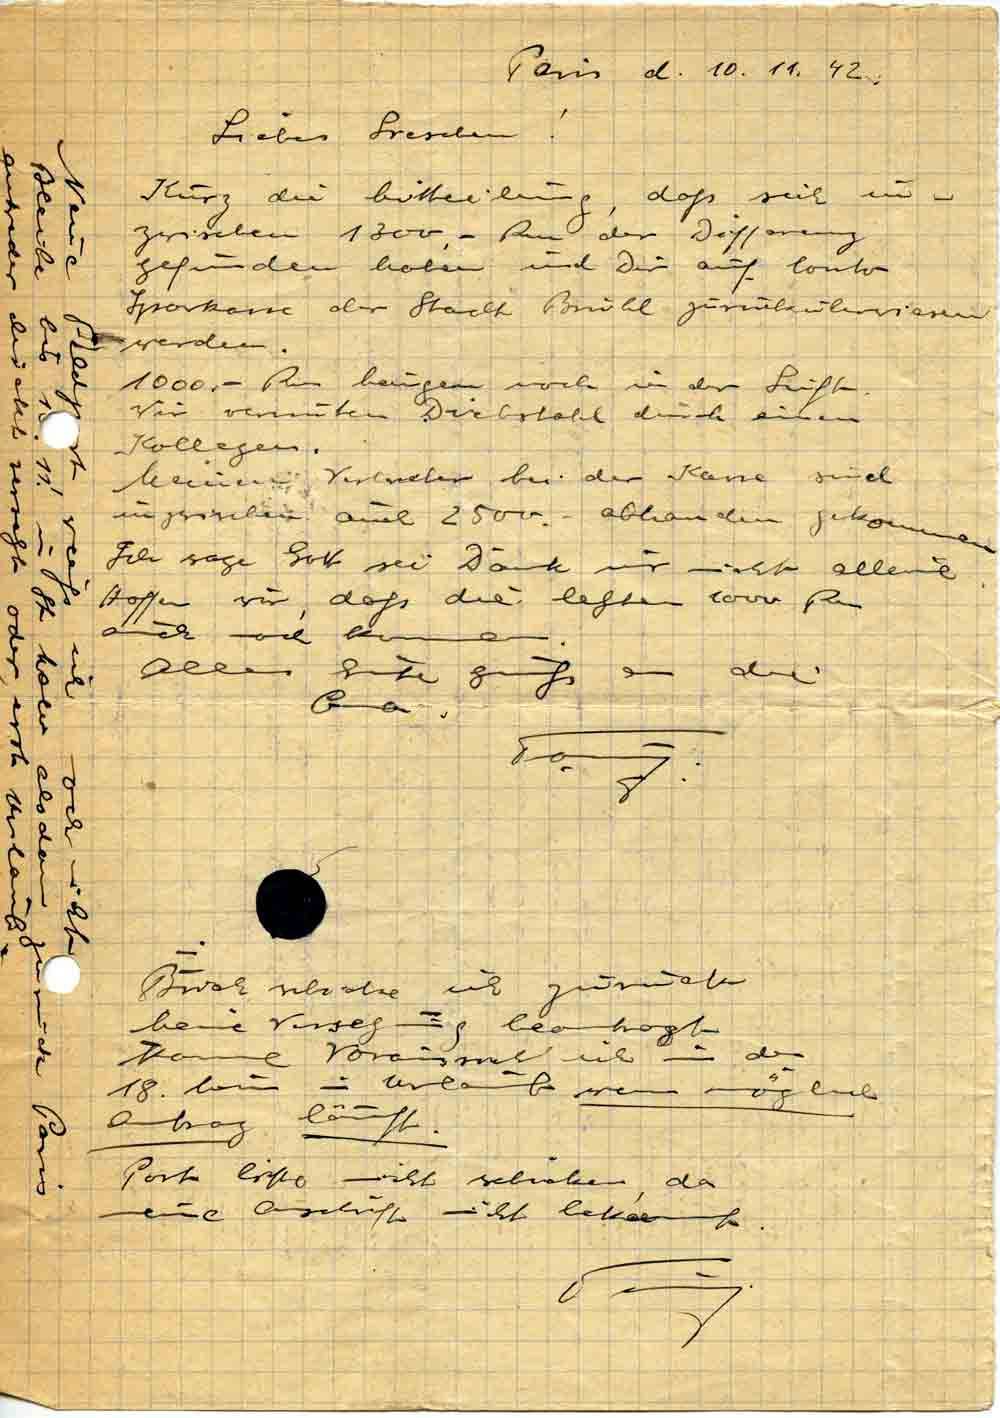 Paris d. 10. 11. 42.
Liebes !
Kurz die Mitteilung, dass sich in-
zwischen 1300,- Rm der Differenz
gefunden haben und Dir auf Conto
Sparkasse der Stadt Brühl zurücküberwiesen
werden.
1000.- Rm hängen noch in der Luft.
Wir vermuten Diebstahl durch einen
Kollegen.
Meinem Vertreter bei der Kasse sind
inzwischen auch 2500.- abhanden gekommen
Ich sage Gott sei Dank mir nicht alleine.
Hoffen wir, dass die letzten 1000 Rm
auch noch kommen.
Alles Gute Gruß an die
Oma.
Bleibe bis 18.11! in haber alsdann zurück Paris
entweder versetzt oder erst Urlaub.
Neue Feldpost weiß ich noch nicht
schicke ich zurück
Meine Versetzung beantragt
Komme Voraussichtlich in den
18. in Urlaub wenn möglich
Antrag läuft.
Post bitte nicht schicken, da
neue Anschrift nicht bekannt.